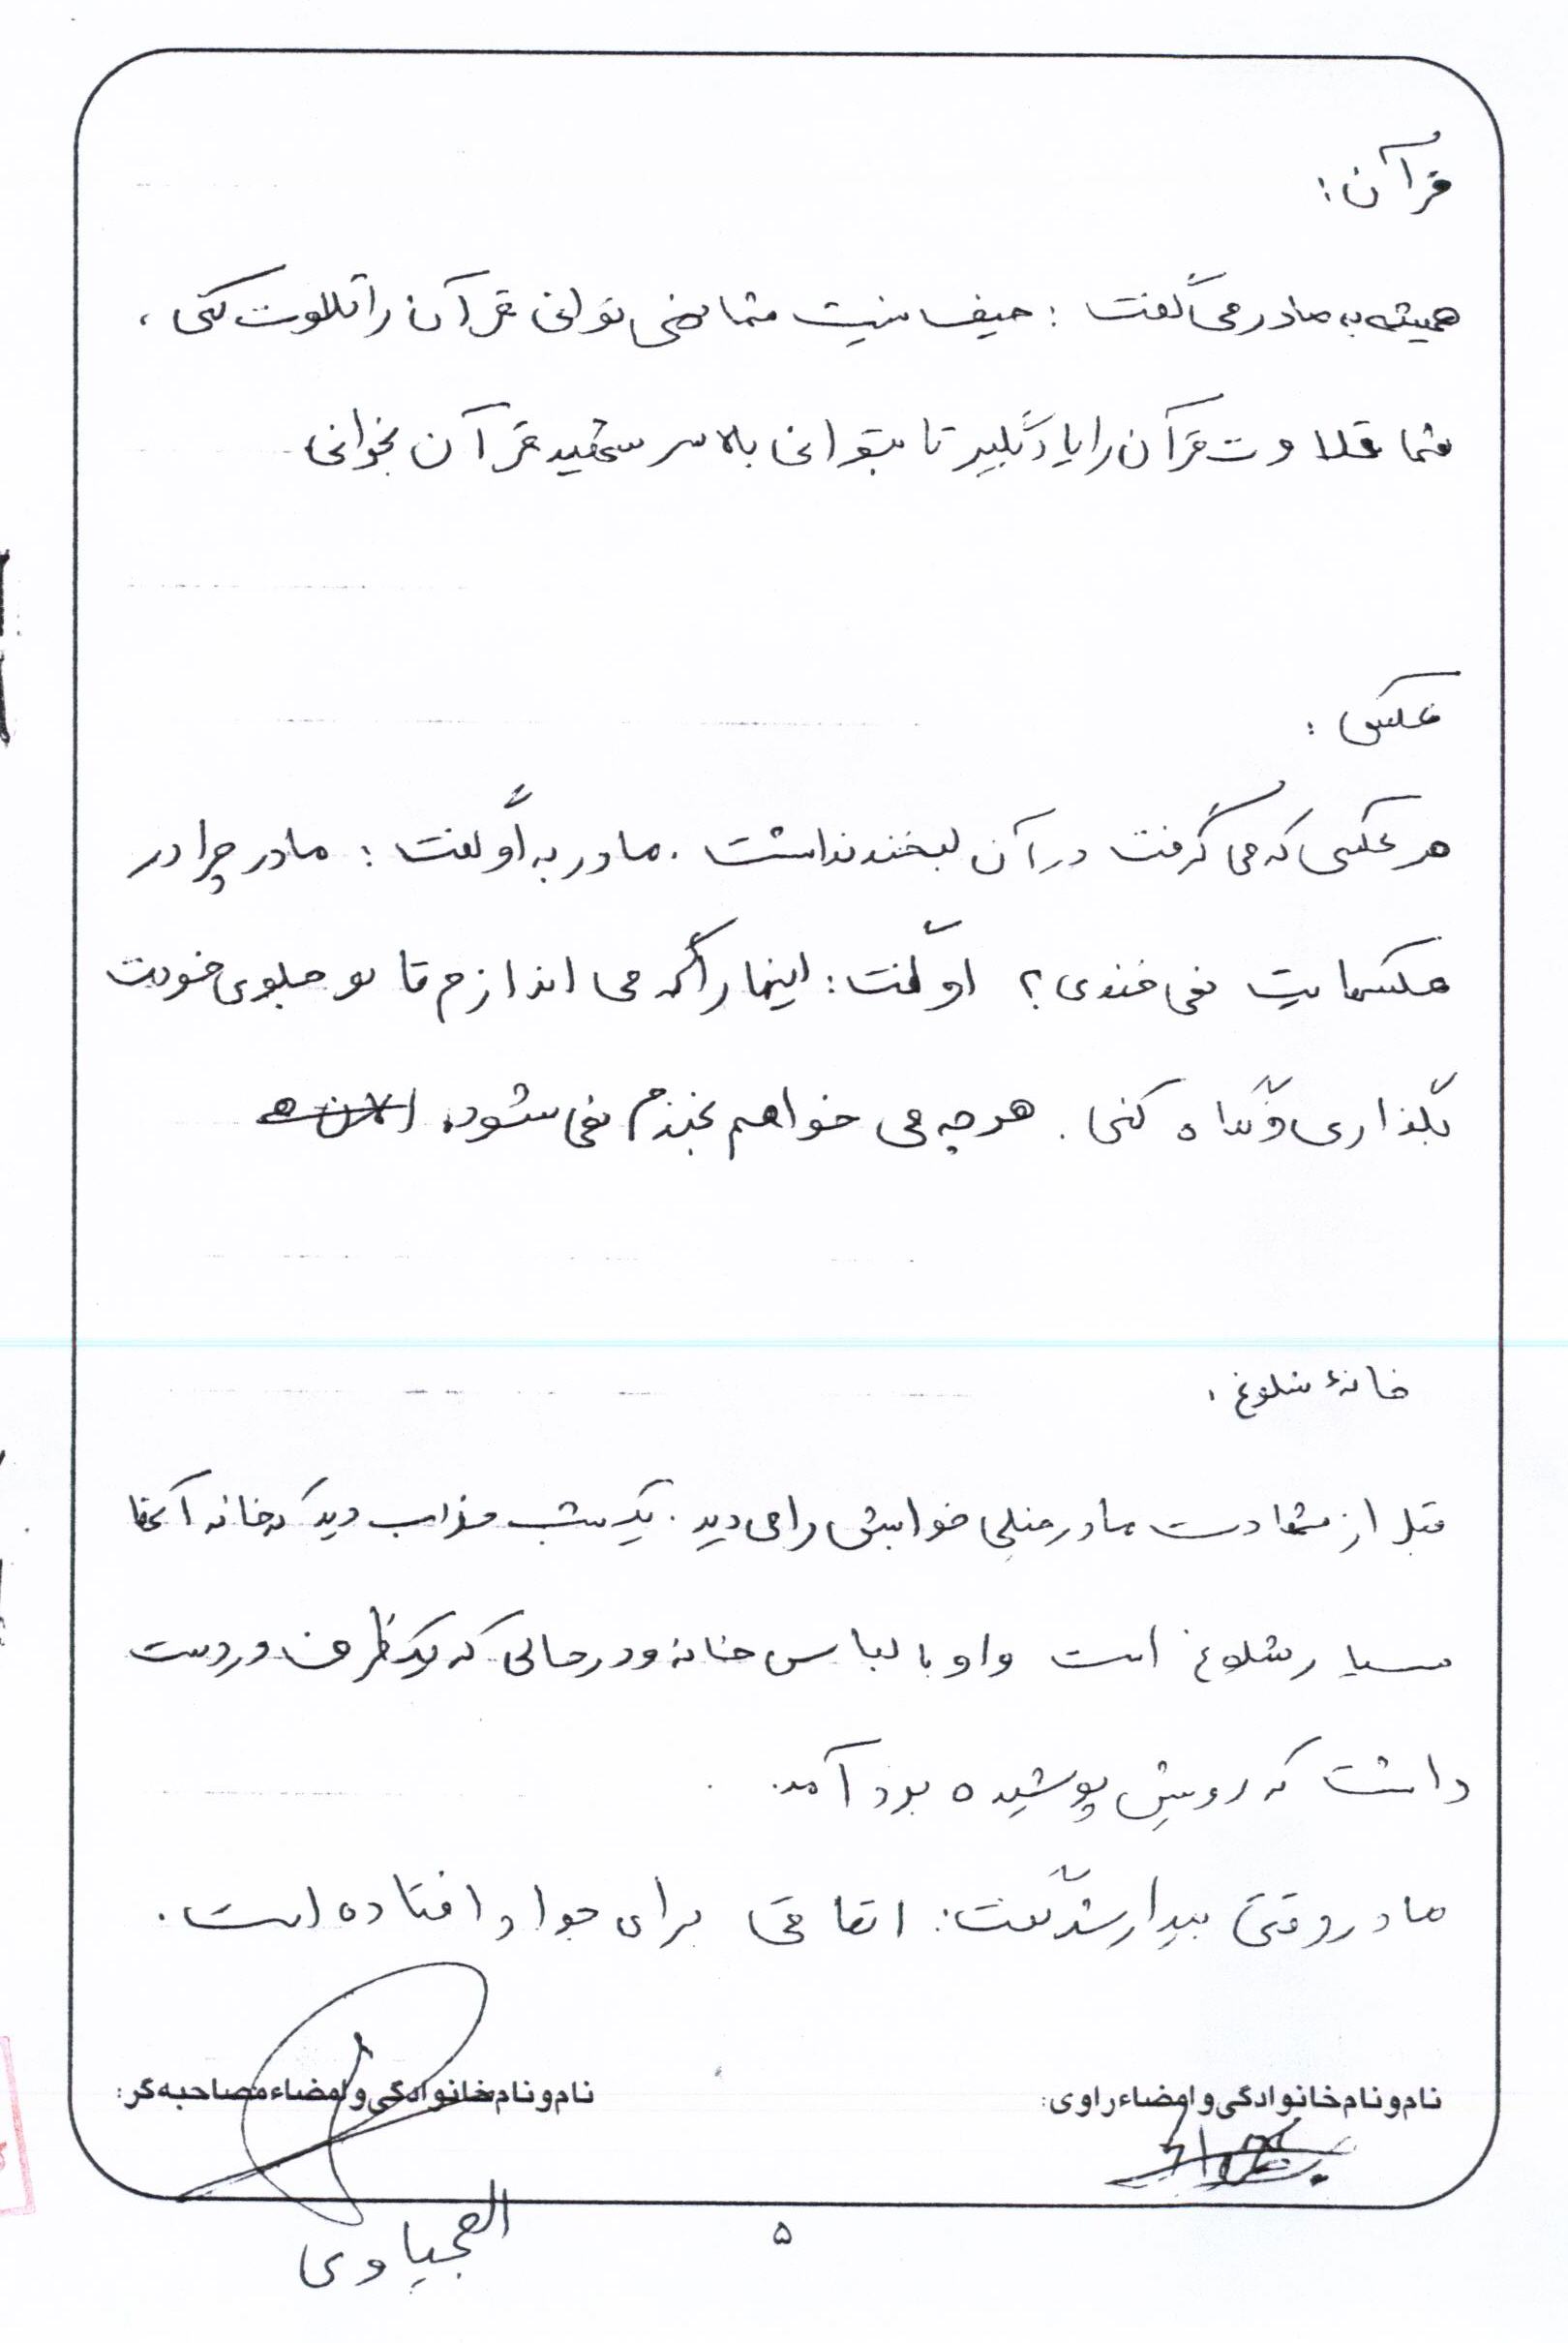 قرآن:
همیشه به مادر می گفت: حیف نیست شما نمی توانی قرآن را تلاوت کنی،
شما تلاوت قرآن را یاد بگیر تا بتوانی بالا سر شهید قرآن بخوانی
عکس:
هر عکسی که می گرفت در آن لبخند نداشت. مادر به او گفت: مادر چرا در
عکسهایت نمی خندی؟ او گفت: اینها را که می اندازم تا تو جلوی خودت
بگذاری و نگاه کنی. هر چه می خواهم بخندم نمی شود.
خانهٔ شلوغ:
قبل از شهادت مادر خیلی خوابش را می دید. یک شب خواب دید که خانه آنها
بسیار شلوغ است و او با لباس خانه و در حالی که یک ظرف در دست
داشت که رویش پوشیده بود آمد.
مادر وقتی بیدار شد گفت: اتفاقی برای جواد افتاده است.
نام و نام خانوادگی و امضاء راوی:
نام و نام خانوادگی و امضاء مصاحبه گر:
۵